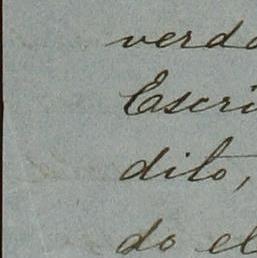 verda
Escri
dito,
do el